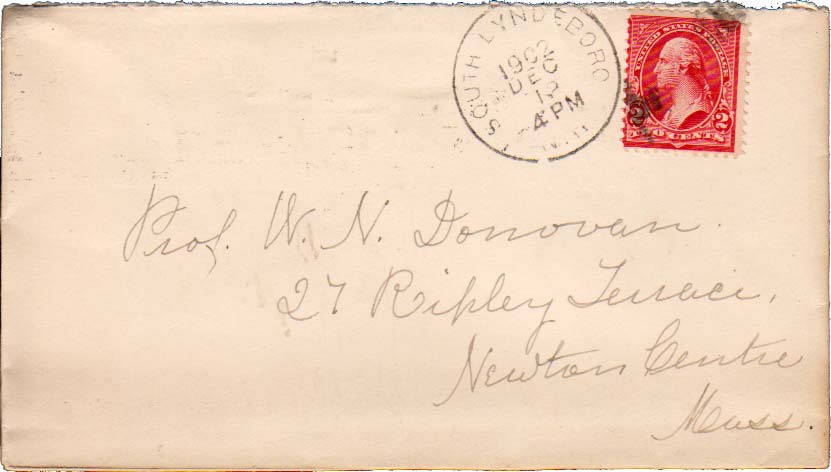 SOUTH LYNDEBORO
1902
DEC
12
4 PM
N.H.
UNITED STATES POSTAGE
2 2
TWO CENTS
Prof. W. N. Donovan.
27 Ripley Terrace,
Newton Centre
Mass.